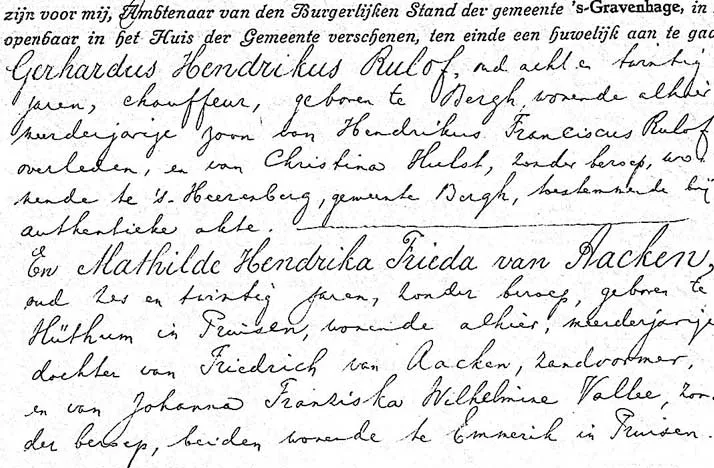 zijn voor mij, Ambtenaar van den Burgerlijken Stand der gemeente 's-Gravenhage, in
openbaar in het Huis der Gemeente verschenen, ten einde een huwelijk aan te gaa
Gerhardus Hendrikus Rulof, oud acht en twintig
jaren, chauffeur, geboren te Bergh, wonende alhier
meerderjarige zoon van Hendrikus Franciscus Rulof
overleden, en van Christina Hulst, zonder beroep, wo-
nende te 's-Heerenberg, gemeente Bergh, toestemmende bij
authentieke akte.
En Mathilde Hendrika Frieda van Aacken,
oud zes en twintig jaren, zonder beroep, geboren te
Hüthum in Pruisen, wonende alhier, meerderjarige
dochter van Friedrich van Aacken, zandvormer,
en van Johanna Franziska Wilhelmine Vallee, zon-
der beroep, beiden wonende te Emmerik in Pruisen.